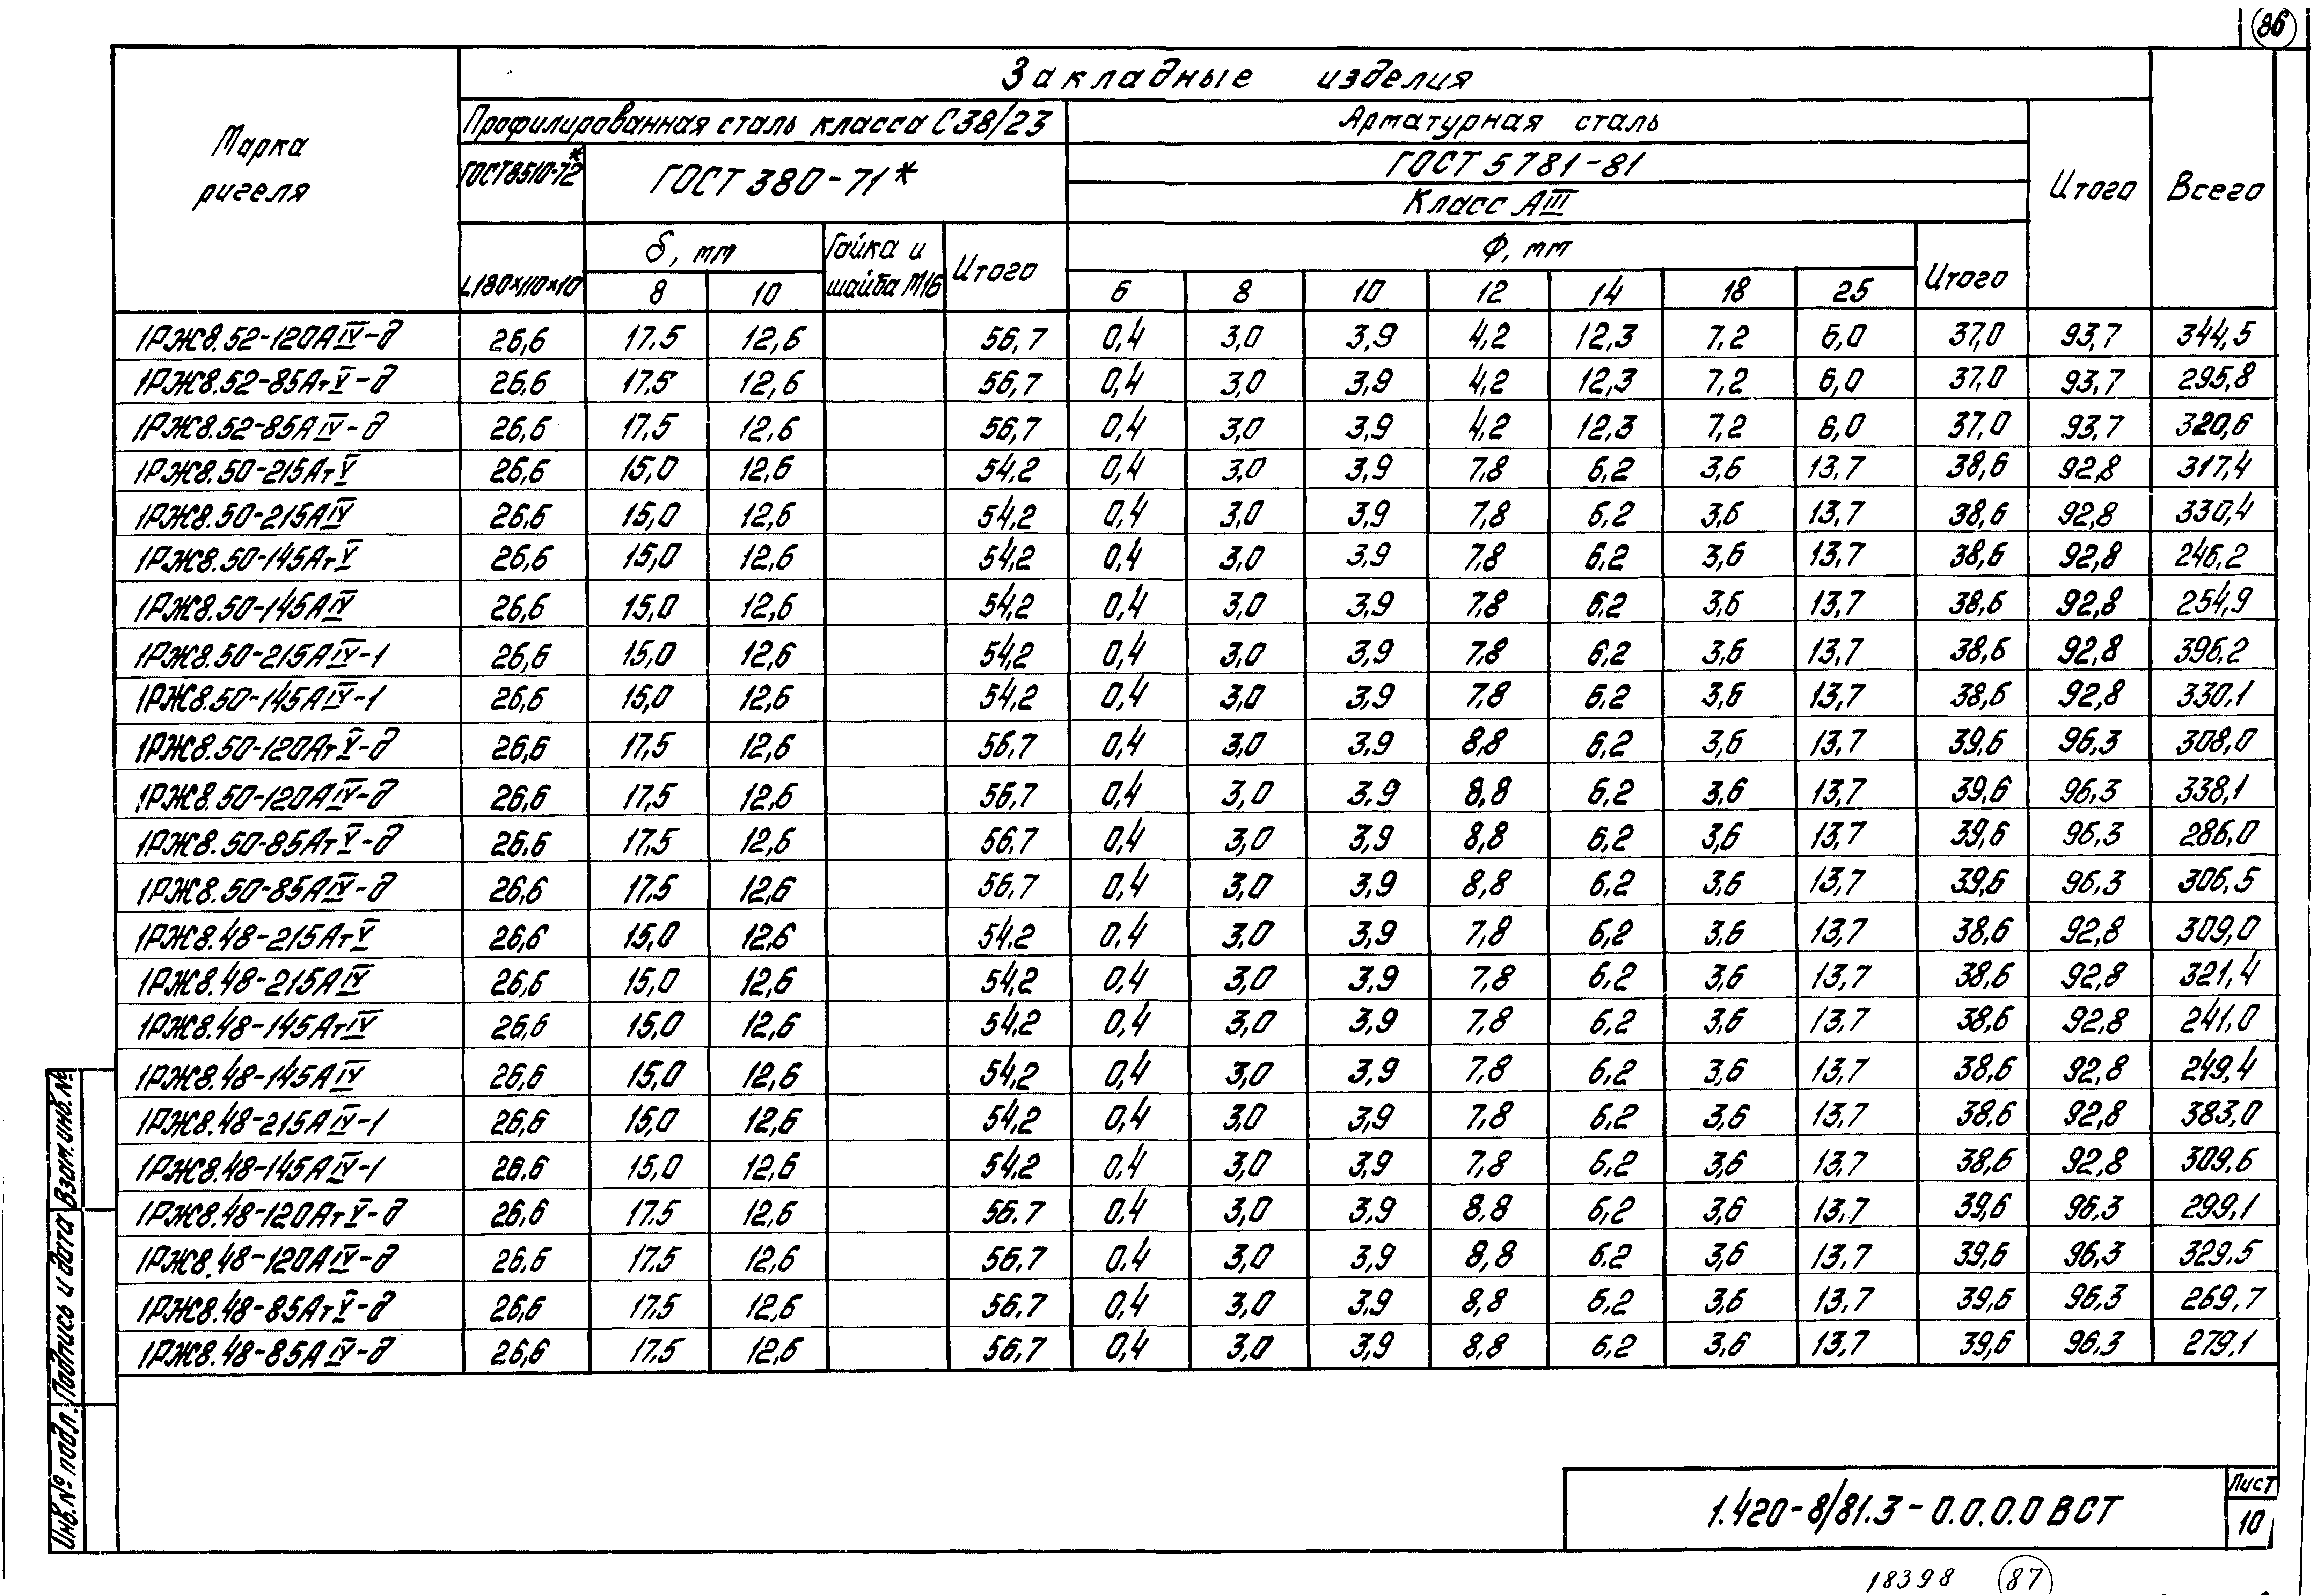 86
Закладные изделия
Марка ригеля
Профилированная сталь класса С38/23
Арматурная сталь
Итого
Всего
ГОСТ 8510-72*
ГОСТ 380-71*
ГОСТ 5781-81
Класс АIII
L180×110×10
δ, мм
Гайка и шайба М16
Итого
Ф, мм
Итого
8 10
6 8 10 12 14 18 25
1РЖ8.52-120АIV-д 26,6 17.5 12,6 56,7 0,4 3,0 3,9 4,2 12,3 7,2 6,0 37,0 93,7 344,5
1РЖ8.52-85АтV-д 26,6 17,5 12,6 56,7 0,4 3,0 3,9 4,2 12,3 7,2 6,0 37,0 93,7 295,8
1РЖ8.52-85АIV-д 26,6 17,5 12,6 56,7 0,4 3,0 3,9 4,2 12,3 7,2 6,0 37,0 93,7 320,6
1РЖ8.50-215АтV 26,6 15,0 12,6 54,2 0,4 3,0 3,9 7,8 6,2 3,6 13,7 38,6 92,8 317,4
1РЖ8.50-215АIV 26,6 15,0 12,6 54,2 0,4 3,0 3,9 7,8 6,2 3,6 13,7 38,6 92,8 330,4
1РЖ8.50-145АтV 26,6 15,0 12,6 54,2 0,4 3,0 3,9 7,8 6,2 3,6 13,7 38,6 92,8 246,2
1РЖ8.50-145АIV 26,6 15,0 12,6 54,2 0,4 3,0 3,9 7,8 6,2 3,6 13,7 38,6 92,8 254,9
1РЖ8.50-215АIV-1 26,6 15,0 12,6 54,2 0,4 3,0 3,9 7,8 6,2 3,6 13,7 38,6 92,8 396,2
1РЖ8.50-145АIV-1 26,6 15,0 12,6 54,2 0,4 3,0 3,9 7,8 6,2 3,6 13,7 38,6 92,8 330,1
1РЖ8.50-120АтV-д 26,6 17,5 12,6 56,7 0,4 3,0 3,9 8,8 6,2 3,6 13,7 39,6 96,3 308,0
1РЖ8.50-120АIV-д 26,6 17,5 12,6 56,7 0,4 3,0 3,9 8,8 6,2 3,6 13,7 39,6 96,3 338,1
1РЖ8.50-85АтV-д 26,6 17,5 12,6 56,7 0,4 3,0 3,9 8,8 6,2 3,6 13,7 39,6 96,3 286,0
1РЖ8.50-85АIV-д 26,6 17,5 12,6 56,7 0,4 3,0 3,9 8,8 6,2 3,6 13,7 39,6 96,3 306,5
1РЖ8.48-215АтV 26,6 15,0 12,6 54,2 0,4 3,0 3,9 7,8 6,2 3,6 13,7 38,6 92,8 309,0
1РЖ8.48-215АIV 26,6 15,0 12,6 54,2 0,4 3,0 3,9 7,8 6,2 3,6 13,7 38,6 92,8 321,4
1РЖ8.48-145АтIV 26,6 15,0 12,6 54,2 0,4 3,0 3,9 7,8 6,2 3,6 13,7 38,6 92,8 241,0
1РЖ8.48-145АIV 26,6 15,0 12,6 54,2 0,4 3,0 3,9 7,8 6,2 3,6 13,7 38,6 92,8 249,4
1РЖ8.48-215АIV-1 26,6 15,0 12,6 54,2 0,4 3,0 3,9 7,8 6,2 3,6 13,7 38,6 92,8 383,0
1РЖ8.48-145АIV-1 26,6 15,0 12,6 54,2 0,4 3,0 3,9 7,8 6,2 3,6 13,7 38,6 92,8 309,6
1РЖ8.48-120АтV-д 26,6 17,5 12,6 56,7 0,4 3,0 3,9 8,8 6,2 3,6 13,7 39,6 96,3 299,1
1РЖ8.48-120АIV-д 26,6 17,5 12,6 56,7 0,4 3,0 3,9 8,8 6,2 3,6 13,7 39,6 96,3 329,5
1РЖ8.48-85АтV-д 26,6 17,5 12,6 56,7 0,4 3,0 3,9 8,8 6,2 3,6 13,7 39,6 96,3 269,7
1РЖ8.48-85АIV-д 26,6 17,5 12,6 56,7 0,4 3,0 3,9 8,8 6,2 3,6 13,7 39,6 96,3 279,1
Инв.№ подл. Подпись и дата Взам.инв.№
1.420-8/81.3-0.0.0.0 ВСТ
Лист
10
18398 87